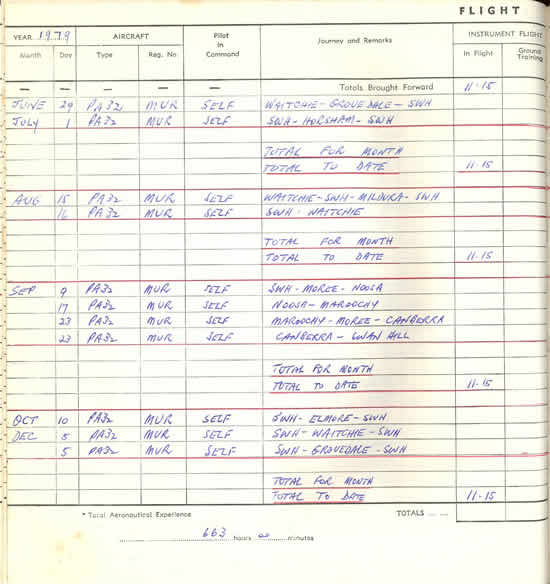 FLIGHT
YEAR 1979 AIRCRAFT Pilot in Command Journey and Remarks INSTRUMENT FLIGHT
Month Day Type Reg. No. In Flight Ground Training
— — — — — Totals Brought Forward 11·15
JUNE 29 PA32 MUR SELF WAITCHIE - GROVEDALE - SWH
JULY 1 PA32 MUR SELF SWH - HORSHAM - SWH
TOTAL FOR MONTH
TOTAL TO DATE 11·15
AUG 15 PA32 MUR SELF WAITCHIE - SWH - MILDURA - SWH
16 PA32 MUR SELF SWH - WAITCHIE
TOTAL FOR MONTH
TOTAL TO DATE 11·15
SEP 9 PA32 MUR SELF SWH - MOREE - NOOSA
17 PA32 MUR SELF NOOSA - MAROOCHY
23 PA32 MUR SELF MAROOCHY - MOREE - CANBERRA
23 PA32 MUR SELF CANBERRA - SWAN HILL
TOTAL FOR MONTH
TOTAL TO DATE 11·15
OCT 10 PA32 MUR SELF SWH - ELMORE - SWH
DEC 5 PA32 MUR SELF SWH - WAITCHIE - SWH
5 PA32 MUR SELF SWH - GROVEDALE - SWH
TOTAL FOR MONTH
TOTAL TO DATE 11·15
* Total Aeronautical Experience TOTALS ... ...
663 hours 00 minutes